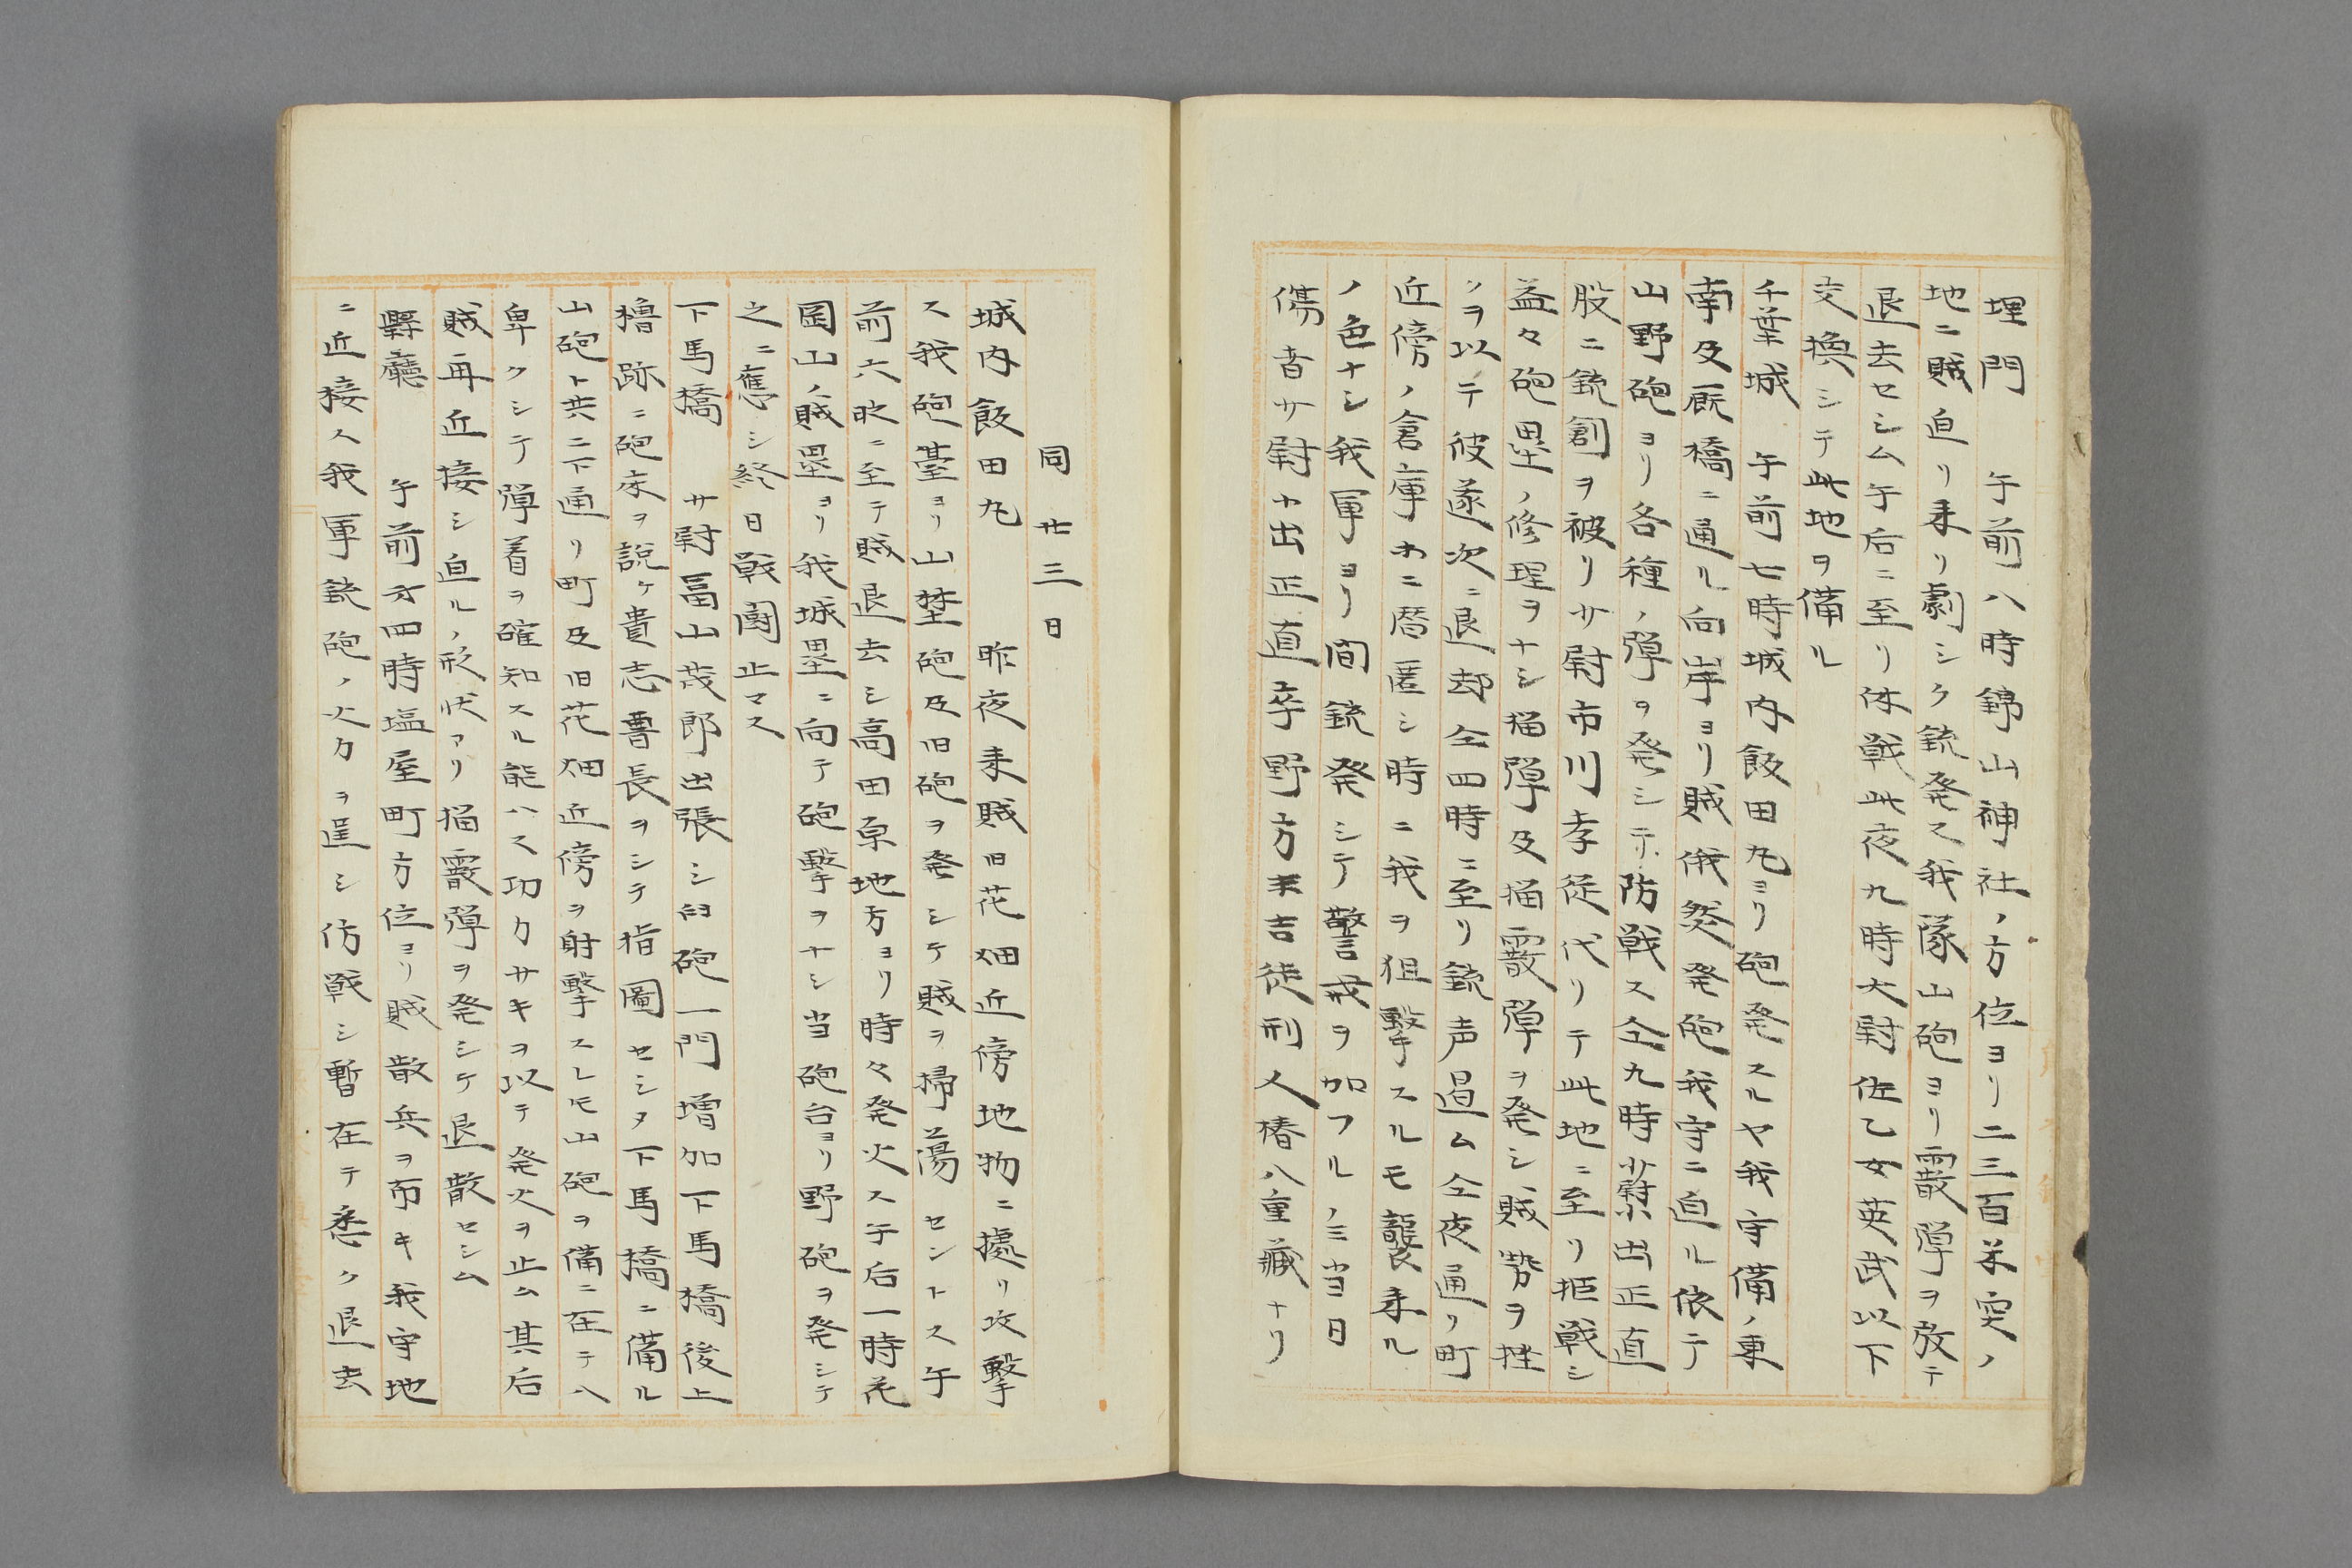 埋門　午前八時錦山神社ノ方位ヨリ二三百米突ノ
地ニ賊迫リ来リ劇シク銃発ス我隊山砲ヨリ霰弾ヲ放テ
退去セシム午后ニ至リ休戦此夜九時大尉佐乙女英武以下
交換シテ此地ヲ備ル
千葉城　午前七時城内飯田丸ヨリ砲発スルヤ我守備ノ東
南及厩橋ニ通ル向岸ヨリ賊俄然発砲我守ニ迫ル依テ
山野砲ヨリ各種ノ弾ヲ発シテ防戦ス仝九時少尉小出正直
股ニ銃創ヲ被リ少尉市川孝従代リテ此地ニ至リ拒戦シ
益々砲塁ノ修理ヲナシ榴弾及榴霰弾ヲ発シ賊勢ヲ挫
クヲ以テ彼遂次ニ退却仝四時ニ至リ銃声過ム仝夜通リ町
近傍ノ倉庫カニ潜匿シ時ニ我ヲ狙撃スルモ襲来ル
ノ色ナシ我軍ヨリ間銃発シテ警戒ヲ加フルノミ当日
傷者少尉小出正直卒野方末吉徒刑人椿八重蔵ナリ
同廿三日
城内飯田丸　昨夜来賊旧花畑近傍地物ニ拠リ攻撃
ス我砲台ヨリ山埜砲及旧砲ヲ発シテ賊ヲ掃蕩セントス午
前六時ニ至テ賊退去シ高田原地方ヨリ時々発火ス午后一時花
岡山ノ賊塁ヨリ我城塁ニ向テ砲撃ヲナシ当砲台ヨリ野砲ヲ発シテ
之ニ應シ終日戦闘止マス
下馬橋　少尉冨山茂郎出張シ臼砲一門増加下馬橋後上
櫓跡ニ砲床ヲ設ケ貴志曹長ヲシテ指圖セシメ下馬橋ニ備ル
山砲ト共ニ下通リ町及旧花畑近傍ヲ射撃スレモ山砲ヲ備ニ在テハ
卑クシテ弾着ヲ確知スル能ハス功力少キヲ以テ発火ヲ止ム其后
賊再近接シ迫ルノ形状アリ榴霰弾ヲ発シテ退散セシム
縣廳　午前第四時塩屋町方位ヨリ賊散兵ヲ布キ我守地
ニ近接ス我軍銃砲ノ火力ヲ逞シ防戦シ暫在テ悉ク退去